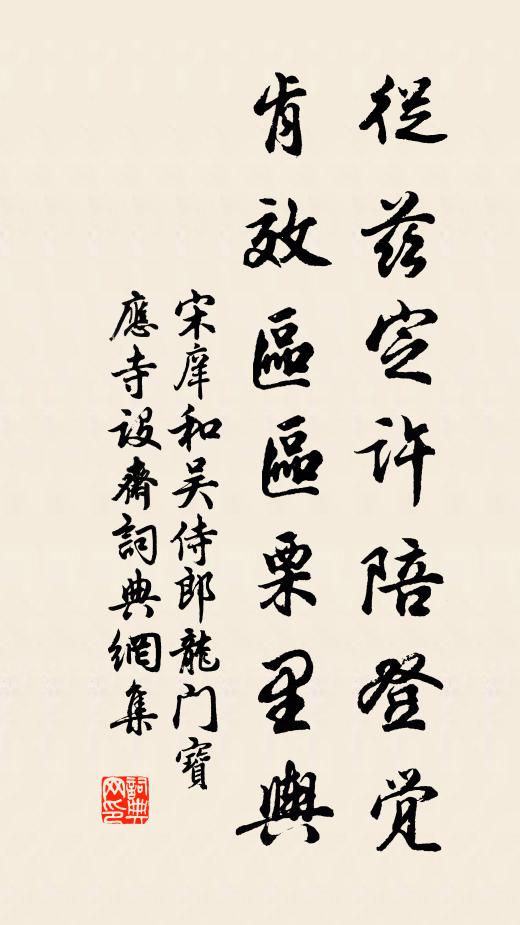 從茲定許陪登覚
肯效區區栗里輿
宋庠和吴侍郎龍门寶
應寺设齋詞典網集
詞典网印